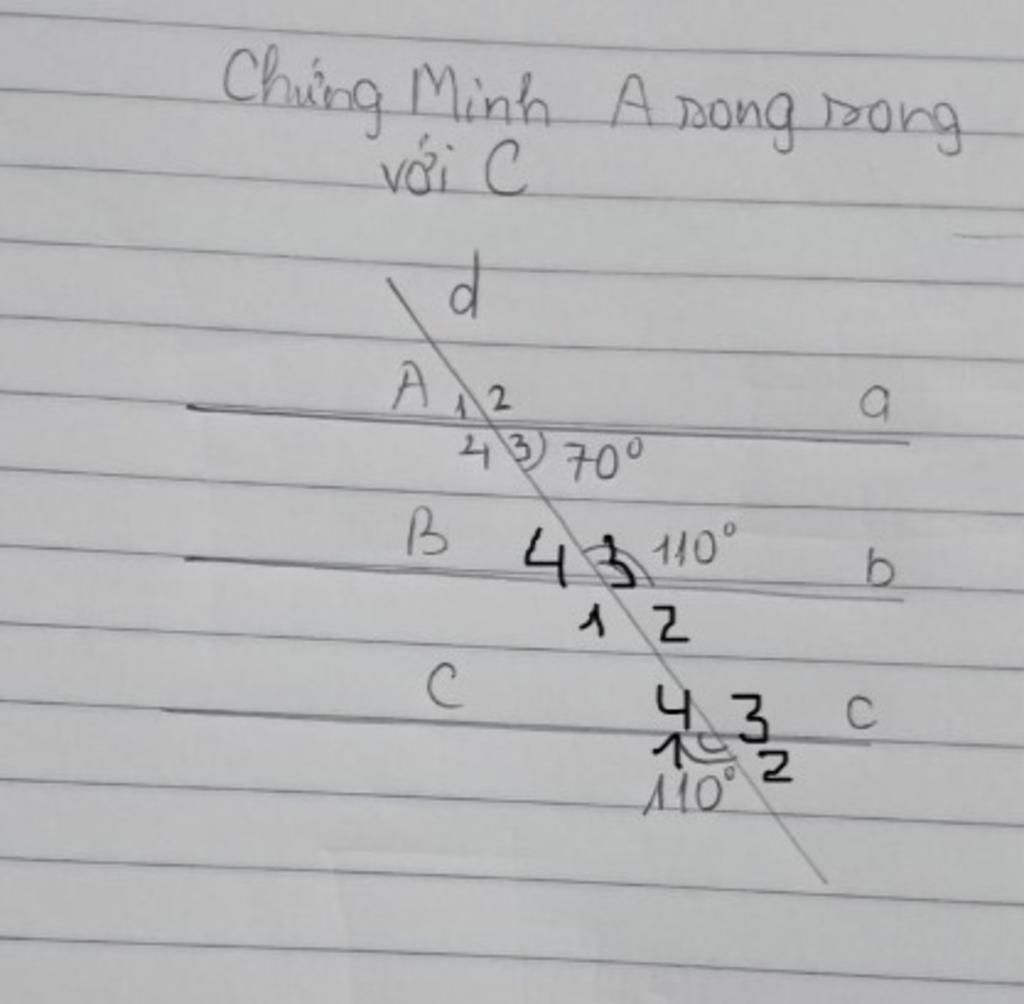 Chứng Minh A song song
với C
d
A 1 2 a
4 3 70°
B 4 3 110° b
1 2
C 4 3 c
1 2
110°